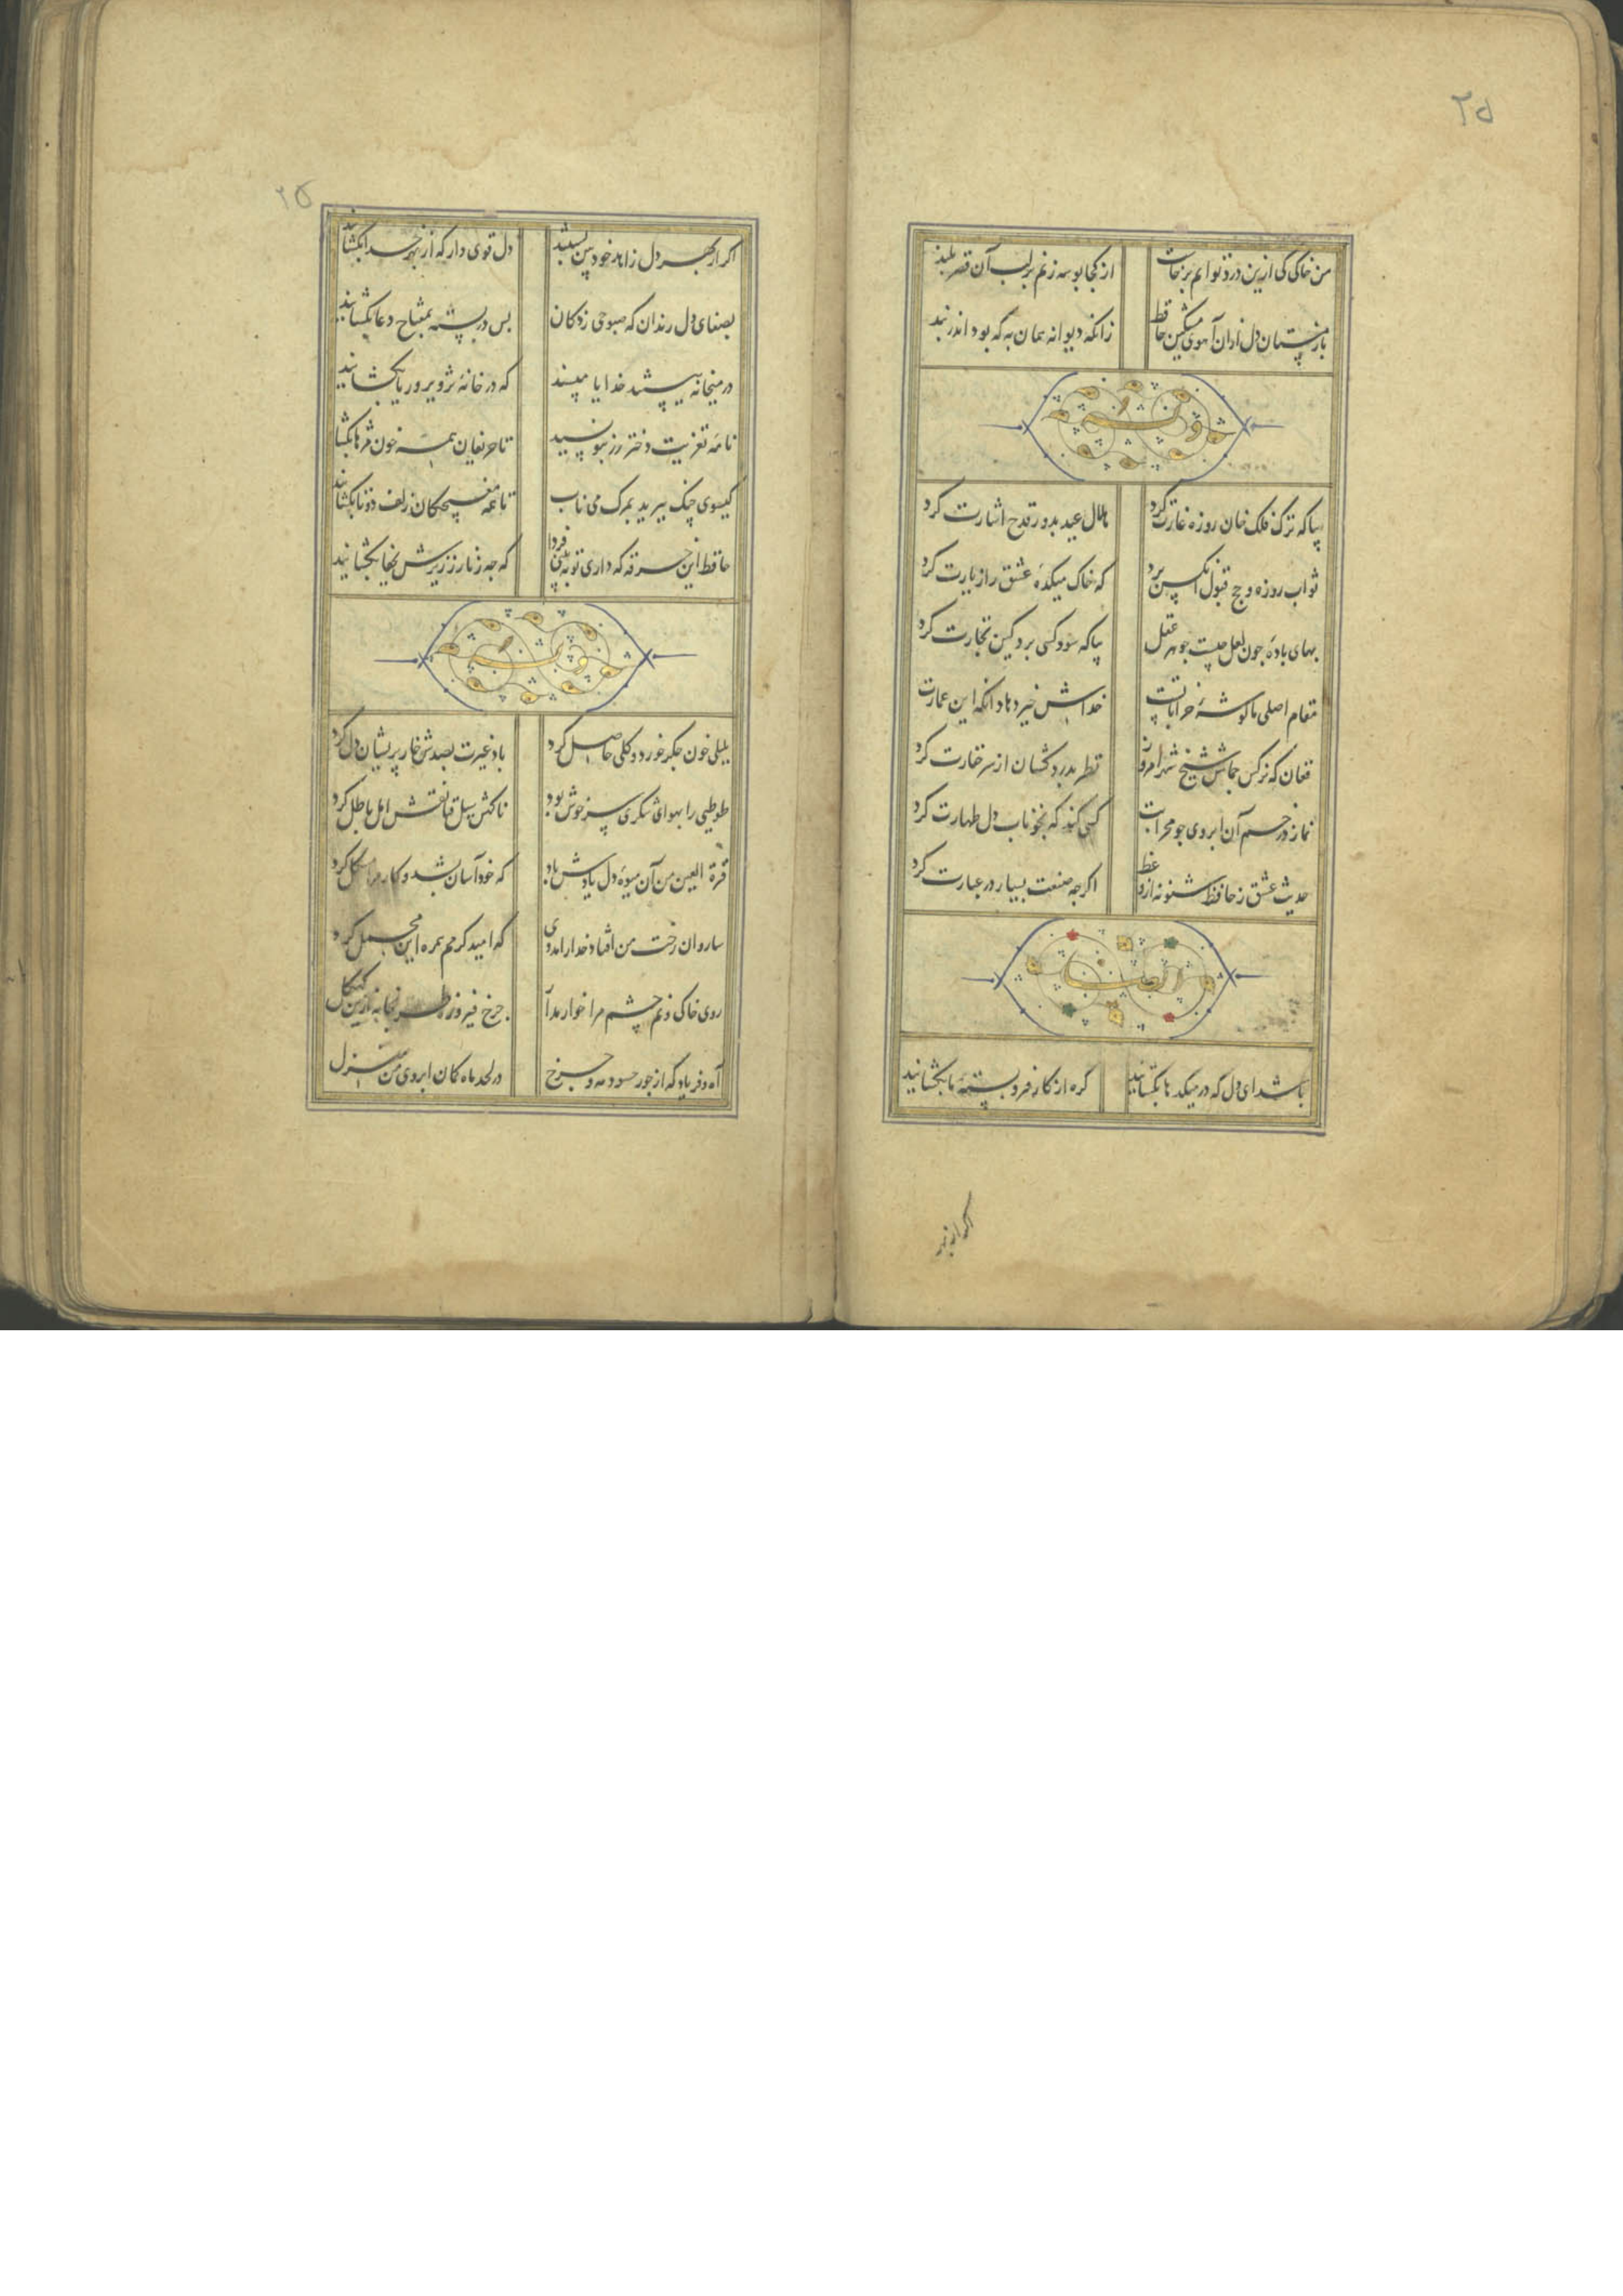 ۲۵
من خاکی کی ازین در نتوانم برخاست از کجا بوسه زنم بر لب آن قصر بلند
باز مستان دل ازان آهوی مشکین حافظ زانکه دیوانه همان به که بود اندر بند
وله
بیا که ترک فلک خان روزه غارت کرد هلال عید بدور قدح اشارت کرد
ثواب روزه و حج قبول آنکس برد که خاک میکده عشق را زیارت کرد
بهای باده جون لعل جیست جوهر عقل بیا که سود کسی برد کین تجارت کرد
مقام اصلی ما کوشه خراباتست خداش خیر دهاد انکه این عمارت
فغان که نرکس جماش شیخ شهر امروز نظر بدردکشان از سر حقارت کرد
نماز در خم آن ابروی جو محرابت کسی کند که بخوناب دل طهارت کرد
حدیث عشق ز حافظ شنو نه از واعظ اکرجه صنعت بسیار در عبارت کرد
ایضا
باشد ای دل که در میکدها بکشایند کره از کار فروبسته ما بکشایند
اکر از بهر
۲۵
اکر از بهر دل زاهد خودبین بستند دل قوی دار که از بهر خدا بکشایند
بصفای دل رندان که صبوحی زدکان بس در بسته بمفتاح دعا بکشایند
در میخانه ببستند خدایا مپسند که در خانه تزویر و ریا بکشایند
نامه تعزیت دختر رز بنویسید تا حریفان همه خون مژها بکشا
کیسوی چنک ببرید بمرک می ناب تا همه مغبچکان زلف دوتا بکشایند
حافظ این خرقه که داری تو ببینی فردا که جه زنار ز زیرش بجفا بکشایند
وله
بلبلی خون جکر خورد و کلی حاصل کرد باد غیرت بصدش خار پریشان دل کرد
طوطیی را بهوای شکری سر خوش بود ناکهش سیل فنا نقش امل باطل کرد
قرة العین من آن میوه دل یادش باد که خود آسان بشد و کار مرا مشکل کرد
ساروان رخت من افتاد خدا را مددی که امید کرمم همره این محمل کرد
روی خاکی و نم چشم مرا خوار مدا جرخ فیروزه طربخانه ازین کهکل
آه و فریاد که از جور حسود مه و جرخ در لحد ماه کمان ابروی من منزل